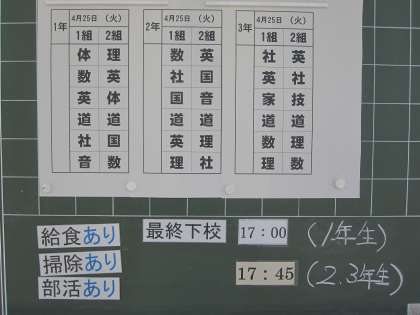 1年 4月25日 (火) 2年 4月25日 (火) 3年 4月25日 (火)
1組 2組 1組 2組 1組 2組
体 理 数 英 社 英
数 英 社 国 英 社
英 体 国 音 家 技
道 道 道 道 道 道
社 国 英 理 数 理
音 数 理 社 理 数
給食あり 最終下校 17:00 (1年生)
掃除あり 17:45 (2.3年生)
部活あり